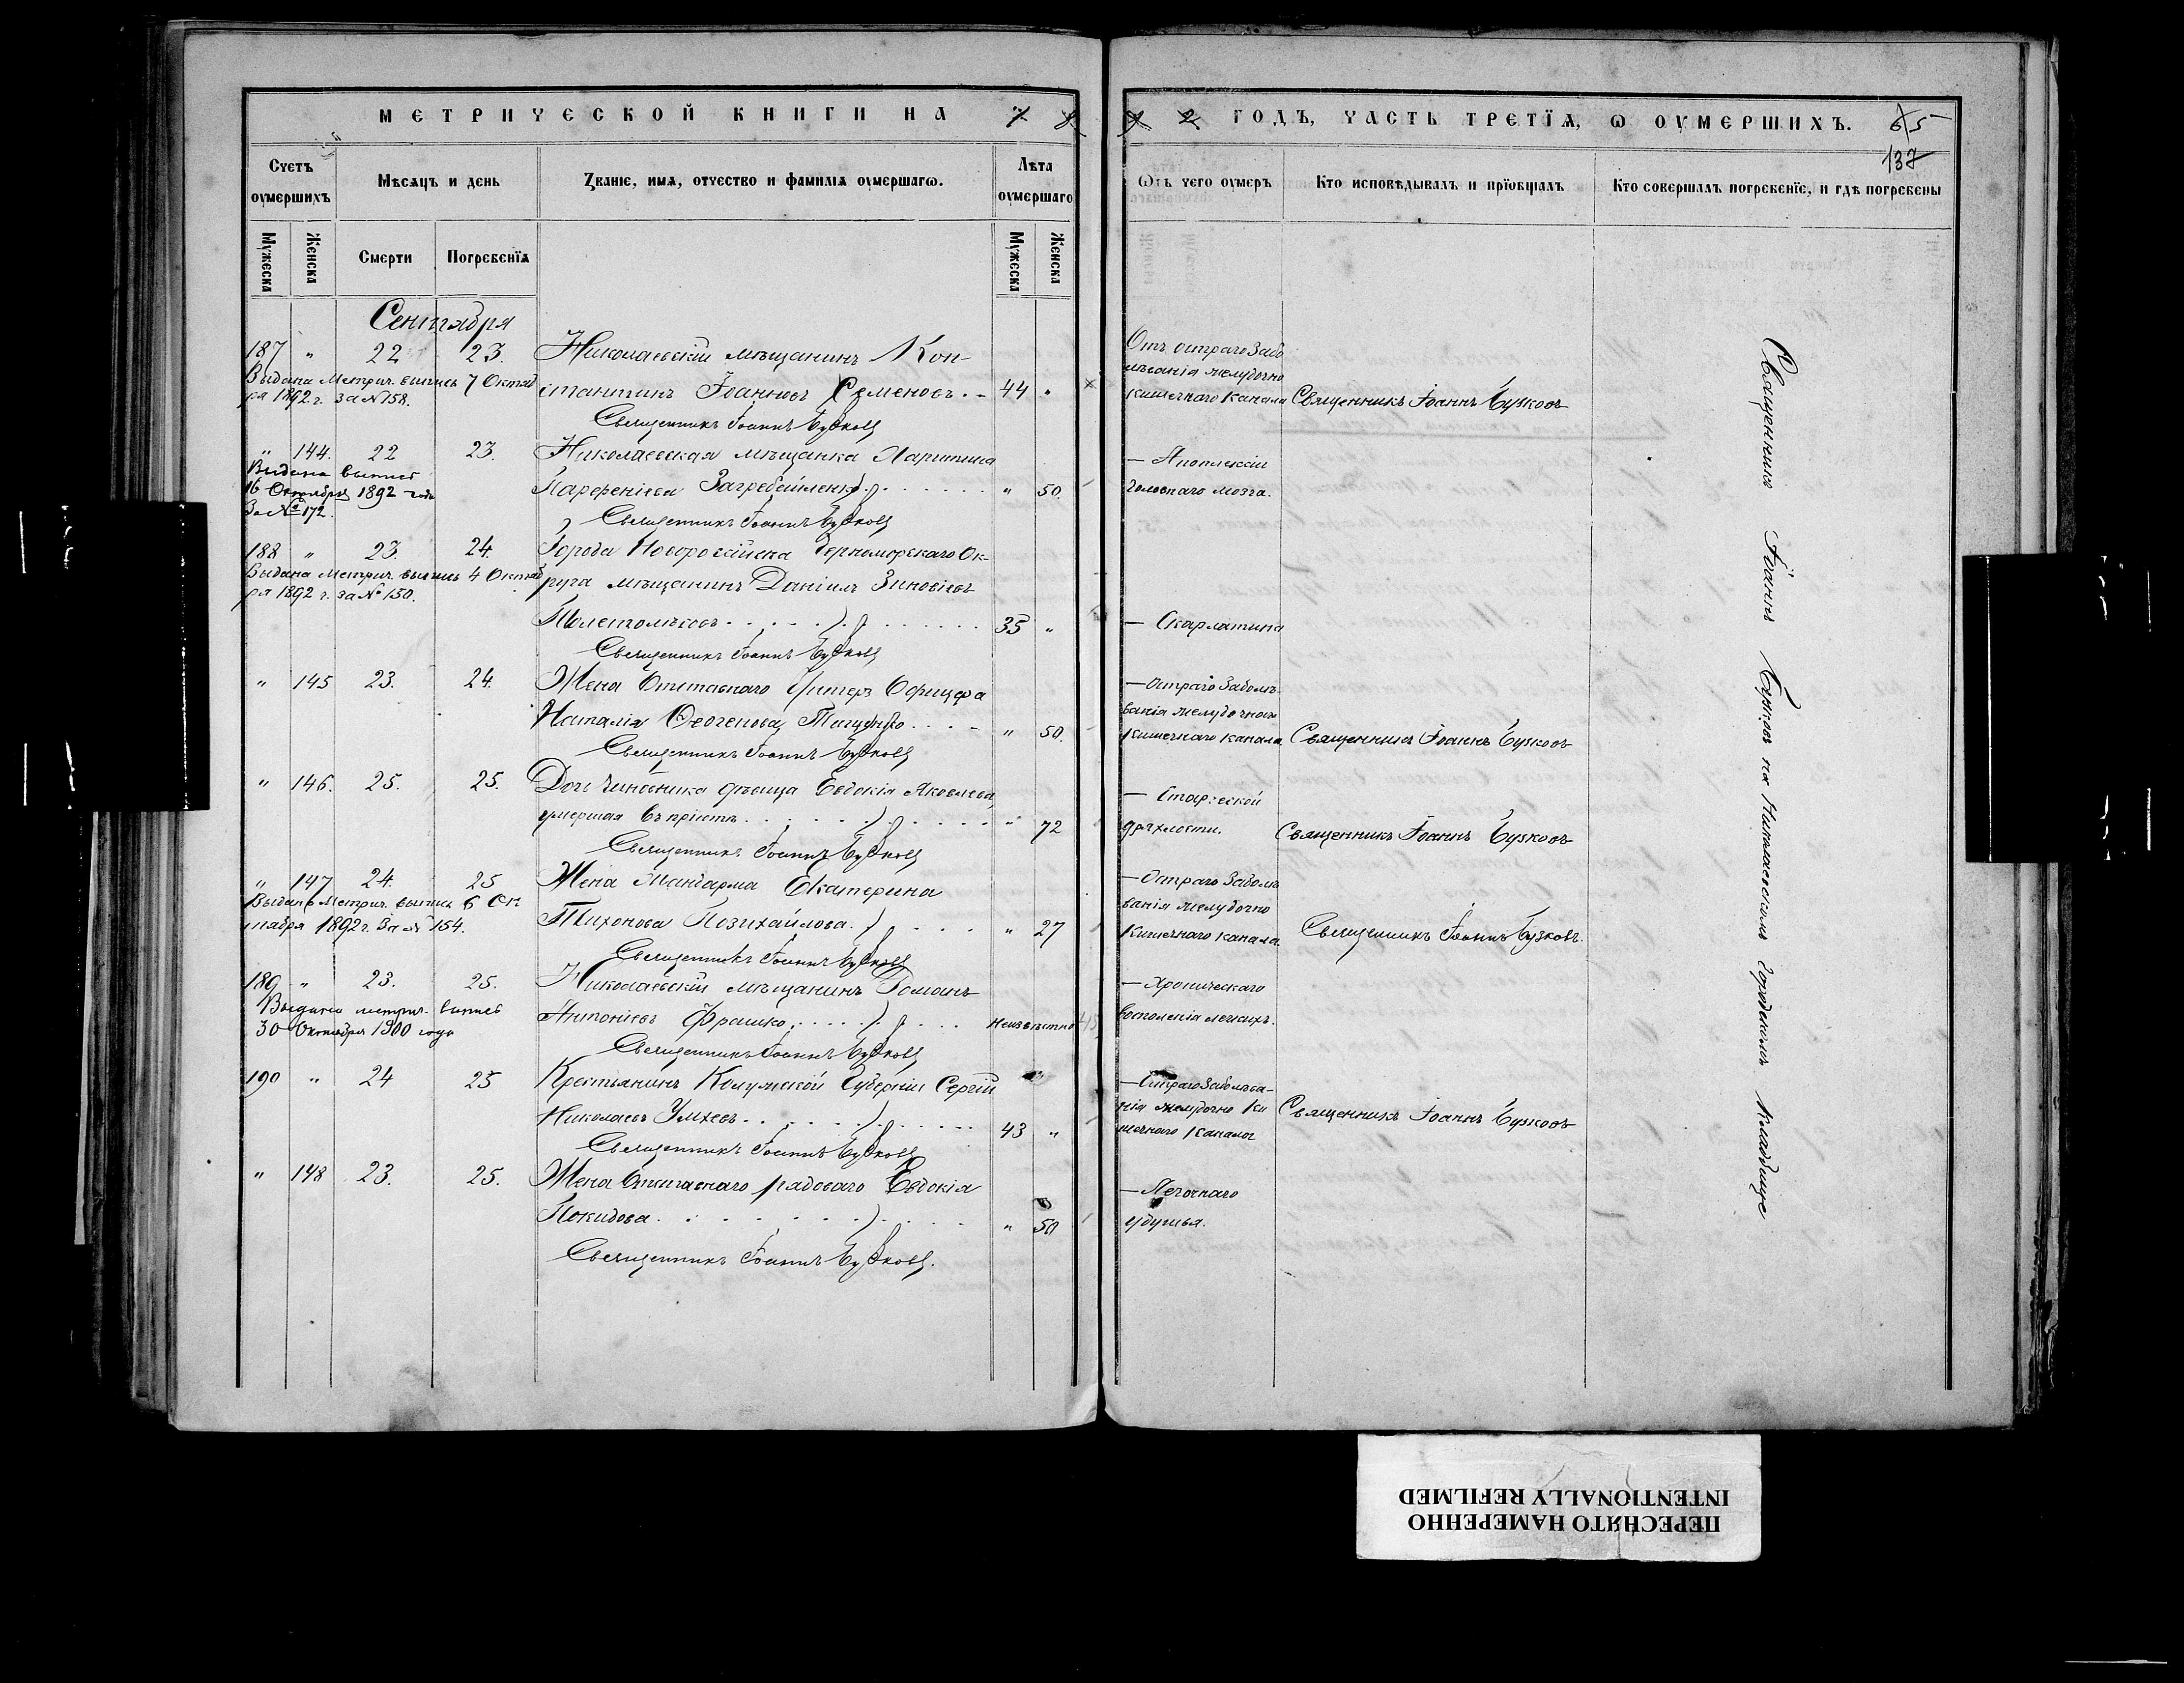 МЕТРИЧЕСКОЙ КНИГИ НА
Счетъ умершихъ
Мѣсяцъ и день
Званіе, имя, отчество и фамилія умершаго.
Лѣта умершаго
Мужеска
Женска
Смерти
Погребенія
Мужеска
Женска
Сентября
187 " 22 23. Николаевскій мѣщанинъ Кон-
Выдана Метрич. выпись 7 Октяб
ря 1892 г. за № 158.
стантинъ Іоанновъ Семеновъ . - 44 "
Священникъ Іоаннъ Бузковъ
" 144. 22 23. Николаевская мѣщанка
Выдана выпись
16 Октября 1892 года
За № 172.
Парфеніева " 50.
Священникъ Іоаннъ Бузковъ
188 " 23. 24. Города Новороссійска Черноморскаго Ок-
Выдана Метрич. выпись 4 Октяб
ря 1892 г. за № 150.
руга мѣщанинъ Даніилъ Зиновіевъ
35 "
Священникъ Іоаннъ Бузковъ
" 145 23. 24. Жена Отставнаго Унтеръ Офицера
Наталія " 50.
Священникъ Іоаннъ Бузковъ
" 146. 25. 25. Дочь Чиновника дѣвица Евдокія Яковлева,
умершая въ пріютѣ " 72
Священникъ Іоаннъ Бузковъ
" 147 24. 25 Жена Жандарма Екатерина
Выдана Метрич. выпись 6 Ок
тября 1892 г. За № 154.
Тихонова Позихайлова. " 27
Священникъ Іоаннъ Бузковъ
189 " 23. 25. Николаевскій мѣщанинъ Романъ
Выдана метрич. выпись
30 Октября 1900 года
Антоніевъ Фрашко Неизвѣстно
Священникъ Іоаннъ Бузковъ
190 " 24 25 Крестьянинъ Калужской Губерніи Сергій
Николаевъ 43 "
Священникъ Іоаннъ Бузковъ
" 148 23. 25. Жена Отставнаго рядоваго Евдокія
Покидова " 50
Священникъ Іоаннъ Бузковъ.
ГОДЪ, ЧАСТЬ ТРЕТІЯ, О УМЕРШИХЪ.
65
137
Отъ чего умеръ
Кто исповѣдывалъ и пріобщалъ
Кто совершалъ погребеніе, и гдѣ погребены
Отъ остраго забо
лѣванія желудочно
кишечнаго канала Священникъ Іоаннъ Бузковъ
— Апоплексіи
головнаго мозга.
— Скарлатина
— Остраго Заболѣ-
ванія желудочно
кишечнаго канала Священникъ Іоаннъ Бузковъ
— Старческой
дряхлости. Священникъ Іоаннъ Бузковъ
— Остраго Заболѣ
ванія желудочно
Кишечнаго канала Священникъ Іоаннъ Бузковъ.
— Хроническаго
воспаленія легкихъ.
— Остраго Заболѣва-
нія желудочно Ки
шечнаго Канала Священникъ Іоаннъ Бузковъ
— Легочнаго
удушья.
Священникъ Іоаннъ Бузковъ на Николаевскомъ городскомъ кладбище
ПЕРЕСНЯТО НАМЕРЕННО
INTENTIONALLY REFILMED